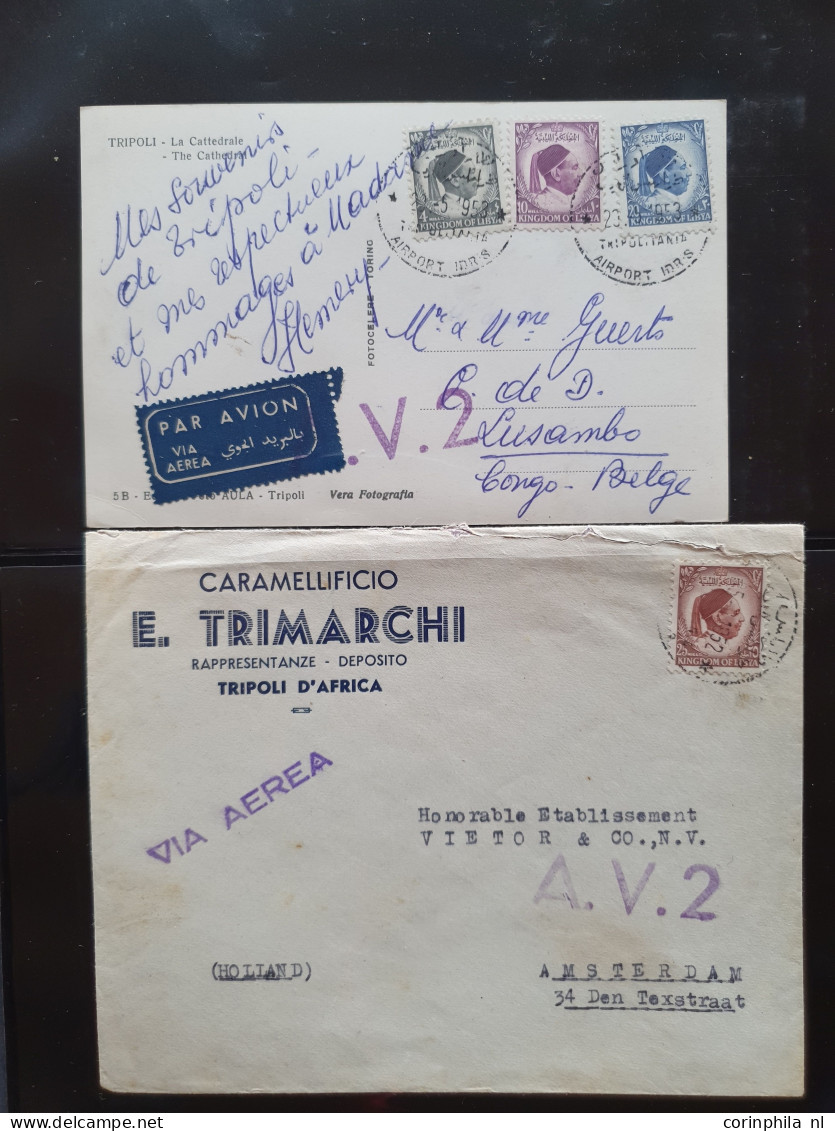 TRIPOLI - La Cattedrale
- The Cathedral
Mes souvenirs
de Tripoli -
et mes respectueux
hommages à Madame -
Hemery -
FOTOCELERE TORINO
4
KINGDOM OF LIBYA
10
KINGDOM OF LIBYA
20
KINGDOM OF LIBYA
5 1952
AIRPORT IDRIS
TRIPOLITANIA
AIRPORT IDRIS
Mr & Mme Guerts
C. de D.
Lusambo
Congo-Belge
PAR AVION
VIA
AEREA
بالبريد الجوي
.V.2
AULA - Tripoli
Vera Fotografia
CARAMELLIFICIO
E. TRIMARCHI
RAPPRESENTANZE - DEPOSITO
TRIPOLI D'AFRICA
25
KINGDOM OF LIBYA
52
VIA AEREA
Honorable Etablissement
VIETOR & CO.,N.V.
A.V.2
(HOLLAND)
AMSTERDAM
34 Den Texstraat
www.corinphila nl